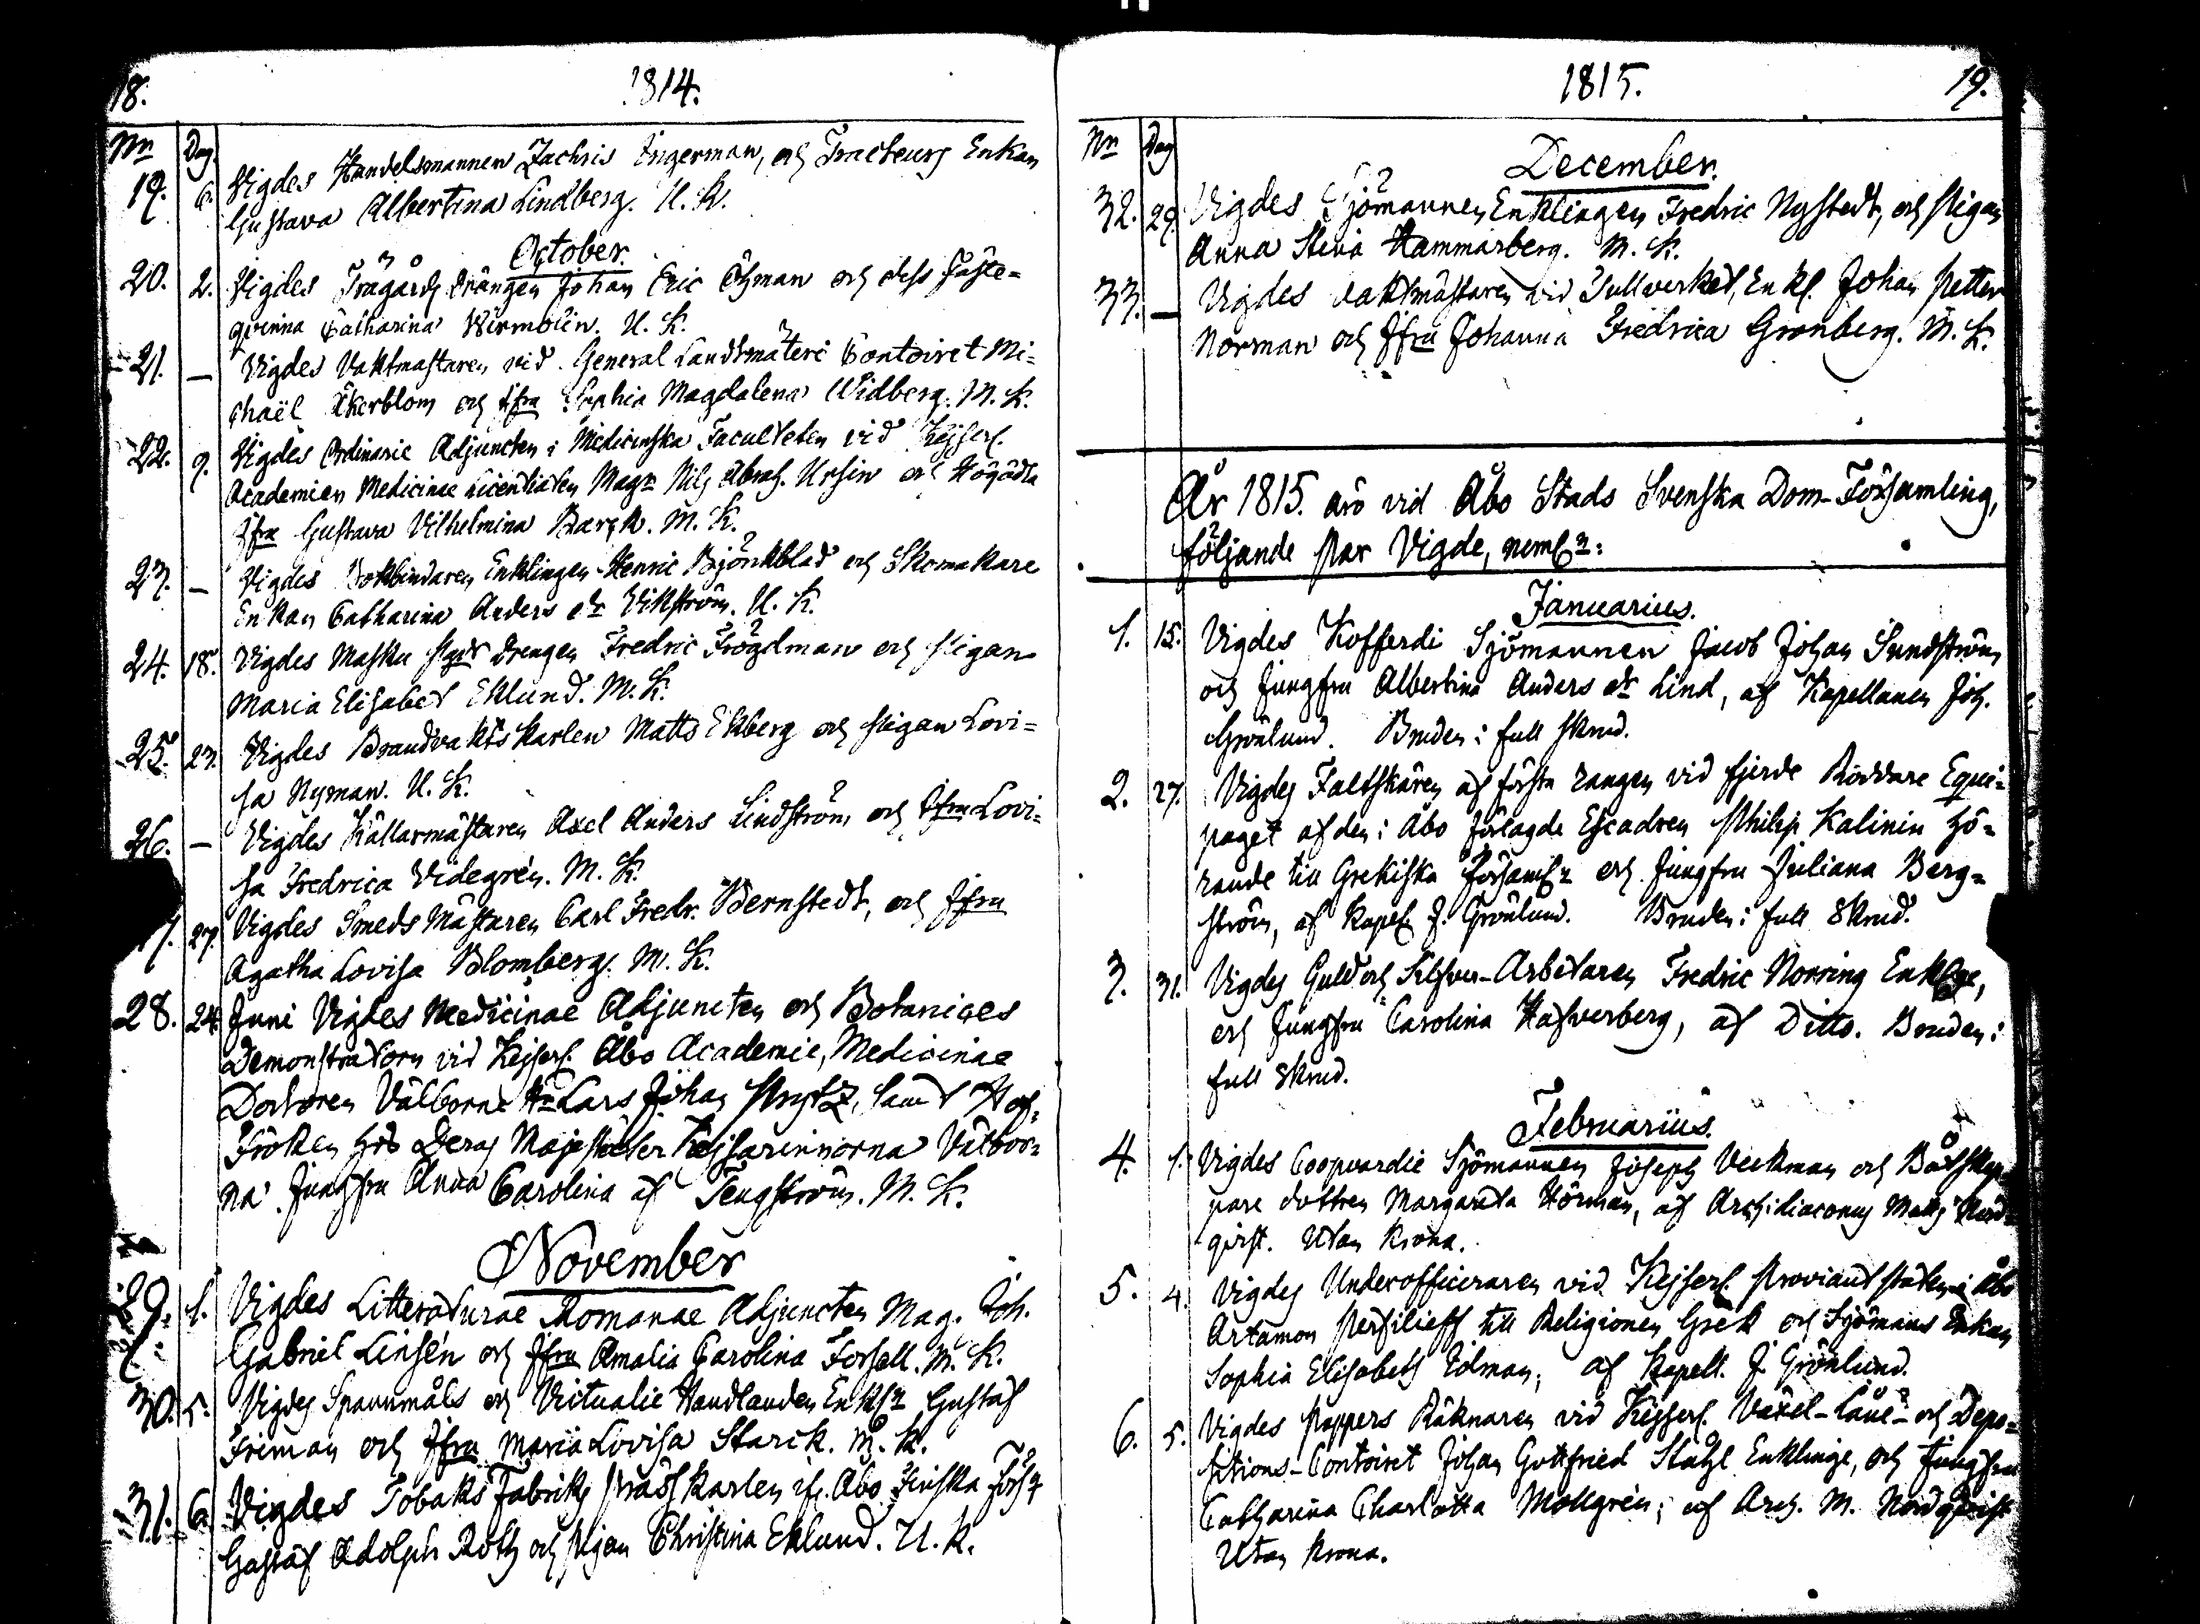 18.
1814.
Nr
Dag.
19. 6. Vigdes Handelsmannen Zachris Ingerman, och Tracteurs Enkan
Gustava Albertina Lindberg. U. K.
October.
20. 2. Vigdes Trägårds Drängen Johan Eric Öhman och dess Fäste=
qvinna Catharina U. K.
21. — Vigdes Vaktmästaren vid General Landtmäteri Contoiret Mi=
chaël Åkerblom och Jfru Sophia Magdalena Widberg. M. K.
22. 9. Vigdes Ordinarie Adjuncten i Medicinska Faculteten vid Kejserl.
Academien Medicinae Licentiaten Magr Nils Abrah. Ursin och Högädla
Jfru Gustava Vilhelmina M. K.
23. — Vigdes Bokbindaren Enklingen Henric Björkblad och Skomakare
Enkan Catharina Anders dr Vikström. U. K.
24. 18. Vigdes Masku drengen Fredric Frögdman och Pigan
Maria Elisabet Eklund. M. K.
25. 23. Vigdes Brandvakts Karlen Matts Ekberg och Pigan Lovi=
sa Nyman. U. K.
26. — Vigdes Källarmästaren Axel Anders Lindström och Jfru Lovi=
sa Fredrica Videgrén. M. K.
7. 27. Vigdes Smeds Mästaren Carl Fredr. Bernstedt, och Jfru
Agatha Lovisa Blomberg. M. K.
28. 24. Juni Vigdes Medicinae Adjuncten och Botanices
Demonstratorn vid Kejserl. Åbo Academie, Medicinae
Doctoren Välborne Hr Lars Johan Prytz, samt Hof=
Fröken hos Deras Majestäter Kejsarinnorna Välbor=
na Jungfru Anna Carolina af Tengström. M. K.
November
29. 1. Vigdes Litteraturae Romanae Adjuncten Mag. Joh.
Gabriel Linsén och Jfru Amalia Carolina Forsell. M. K.
30. 5. Vigdes Spannmåls och Victualie Handlanden Enklr Gustaf
Friman och Jfru Maria Lovisa Starck. M. K.
31. 6. Vigdes Tobaks Fabriks Karlen ifr. Åbo Finska Förs
Gustaf Adolph Roth och Pigan Christina Eklund. U. K.
1815.
19.
Nr
Dag
December.
32. 29. Vigdes Sjömannen Enklingen Fredric Nystedt, och Pigan
Anna Stina Hammarberg. M. K.
33. — Vigdes vaktmästaren vid Tullverket, Enkl. Johan Petter
Norman och Jfru Johanna Fredrica Grönberg. M. K.
År 1815. äro vid Åbo Stads Svenska Dom-Församling,
följande Par Vigde, neml.n:
Januarius.
1. 15. Vigdes Kofferdi Sjömannen Jacob Johan Sundström
och Jungfru Albertina Anders dr Lind, af Kapellanen Joh.
Grönlund. Bruden i full skrud.
2. 27. Vigdes Fältskären af första rangen vid fjerde Roddare Equi=
paget af den i Åbo förlagde Escadren Philip Kalinin hö=
rande till Grekiska Församl.n och Jungfru Juliana Berg=
ström, af Kapel J. Grönlund. Bruden i full Skrud.
3. 31. Vigdes Guld och Silfver-Arbetaren Fredric Norring Enklge,
och Jungfru Carolina Hafverberg, af Ditto. Bruden i
full Skrud.
Februarius.
4. 1. Vigdes Coopvardie Sjömannen Joseph Veckman och Båtskep=
pare dottren Margareta Hörman, af Archidiaconus Matts Nord=
qvist. Utan Krona.
5. 4. Vigdes Underofficeraren vid Kejserl. Proviant staten i Åbo
Artamon till Religionen Grek och Sjömans Enkan
Sophia Elisabeth Edman, af Kapell. J. Grönlund.
6. 5. Vigdes Pappers Räknaren vid Kejserl. Växel-Låne- och Depo=
sitions-Contoiret Johan Gottfried Ståhl Enklinge, och Jungfru
Catharina Charlotta Mollgrén; af Arch. M. Nordqvist
Utan krona.